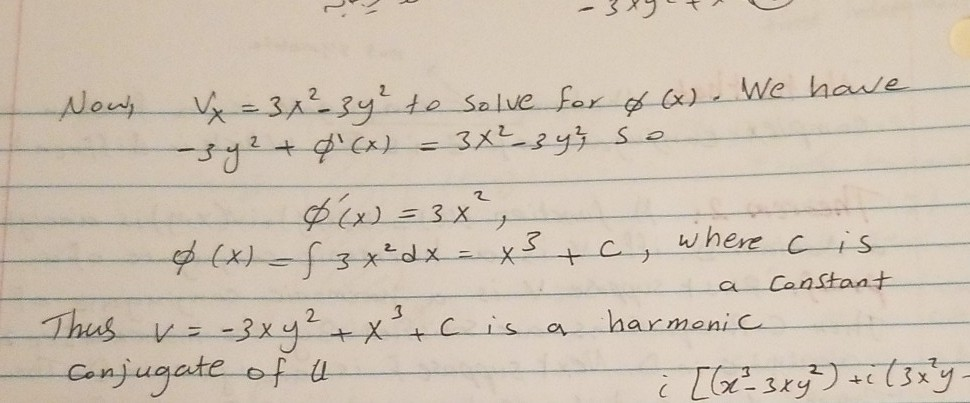 - 3xy² +
Now, Vₓ = 3x² - 3y² to solve for ϕ(x). We have
-3y² + ϕ'(x) = 3x² - 3y², so
ϕ'(x) = 3x²,
ϕ(x) = ∫ 3x² dx = x³ + C, where C is
a constant
Thus v = -3xy² + x³ + C is a harmonic
conjugate of u
i [(x³ - 3xy²) + i (3x²y -